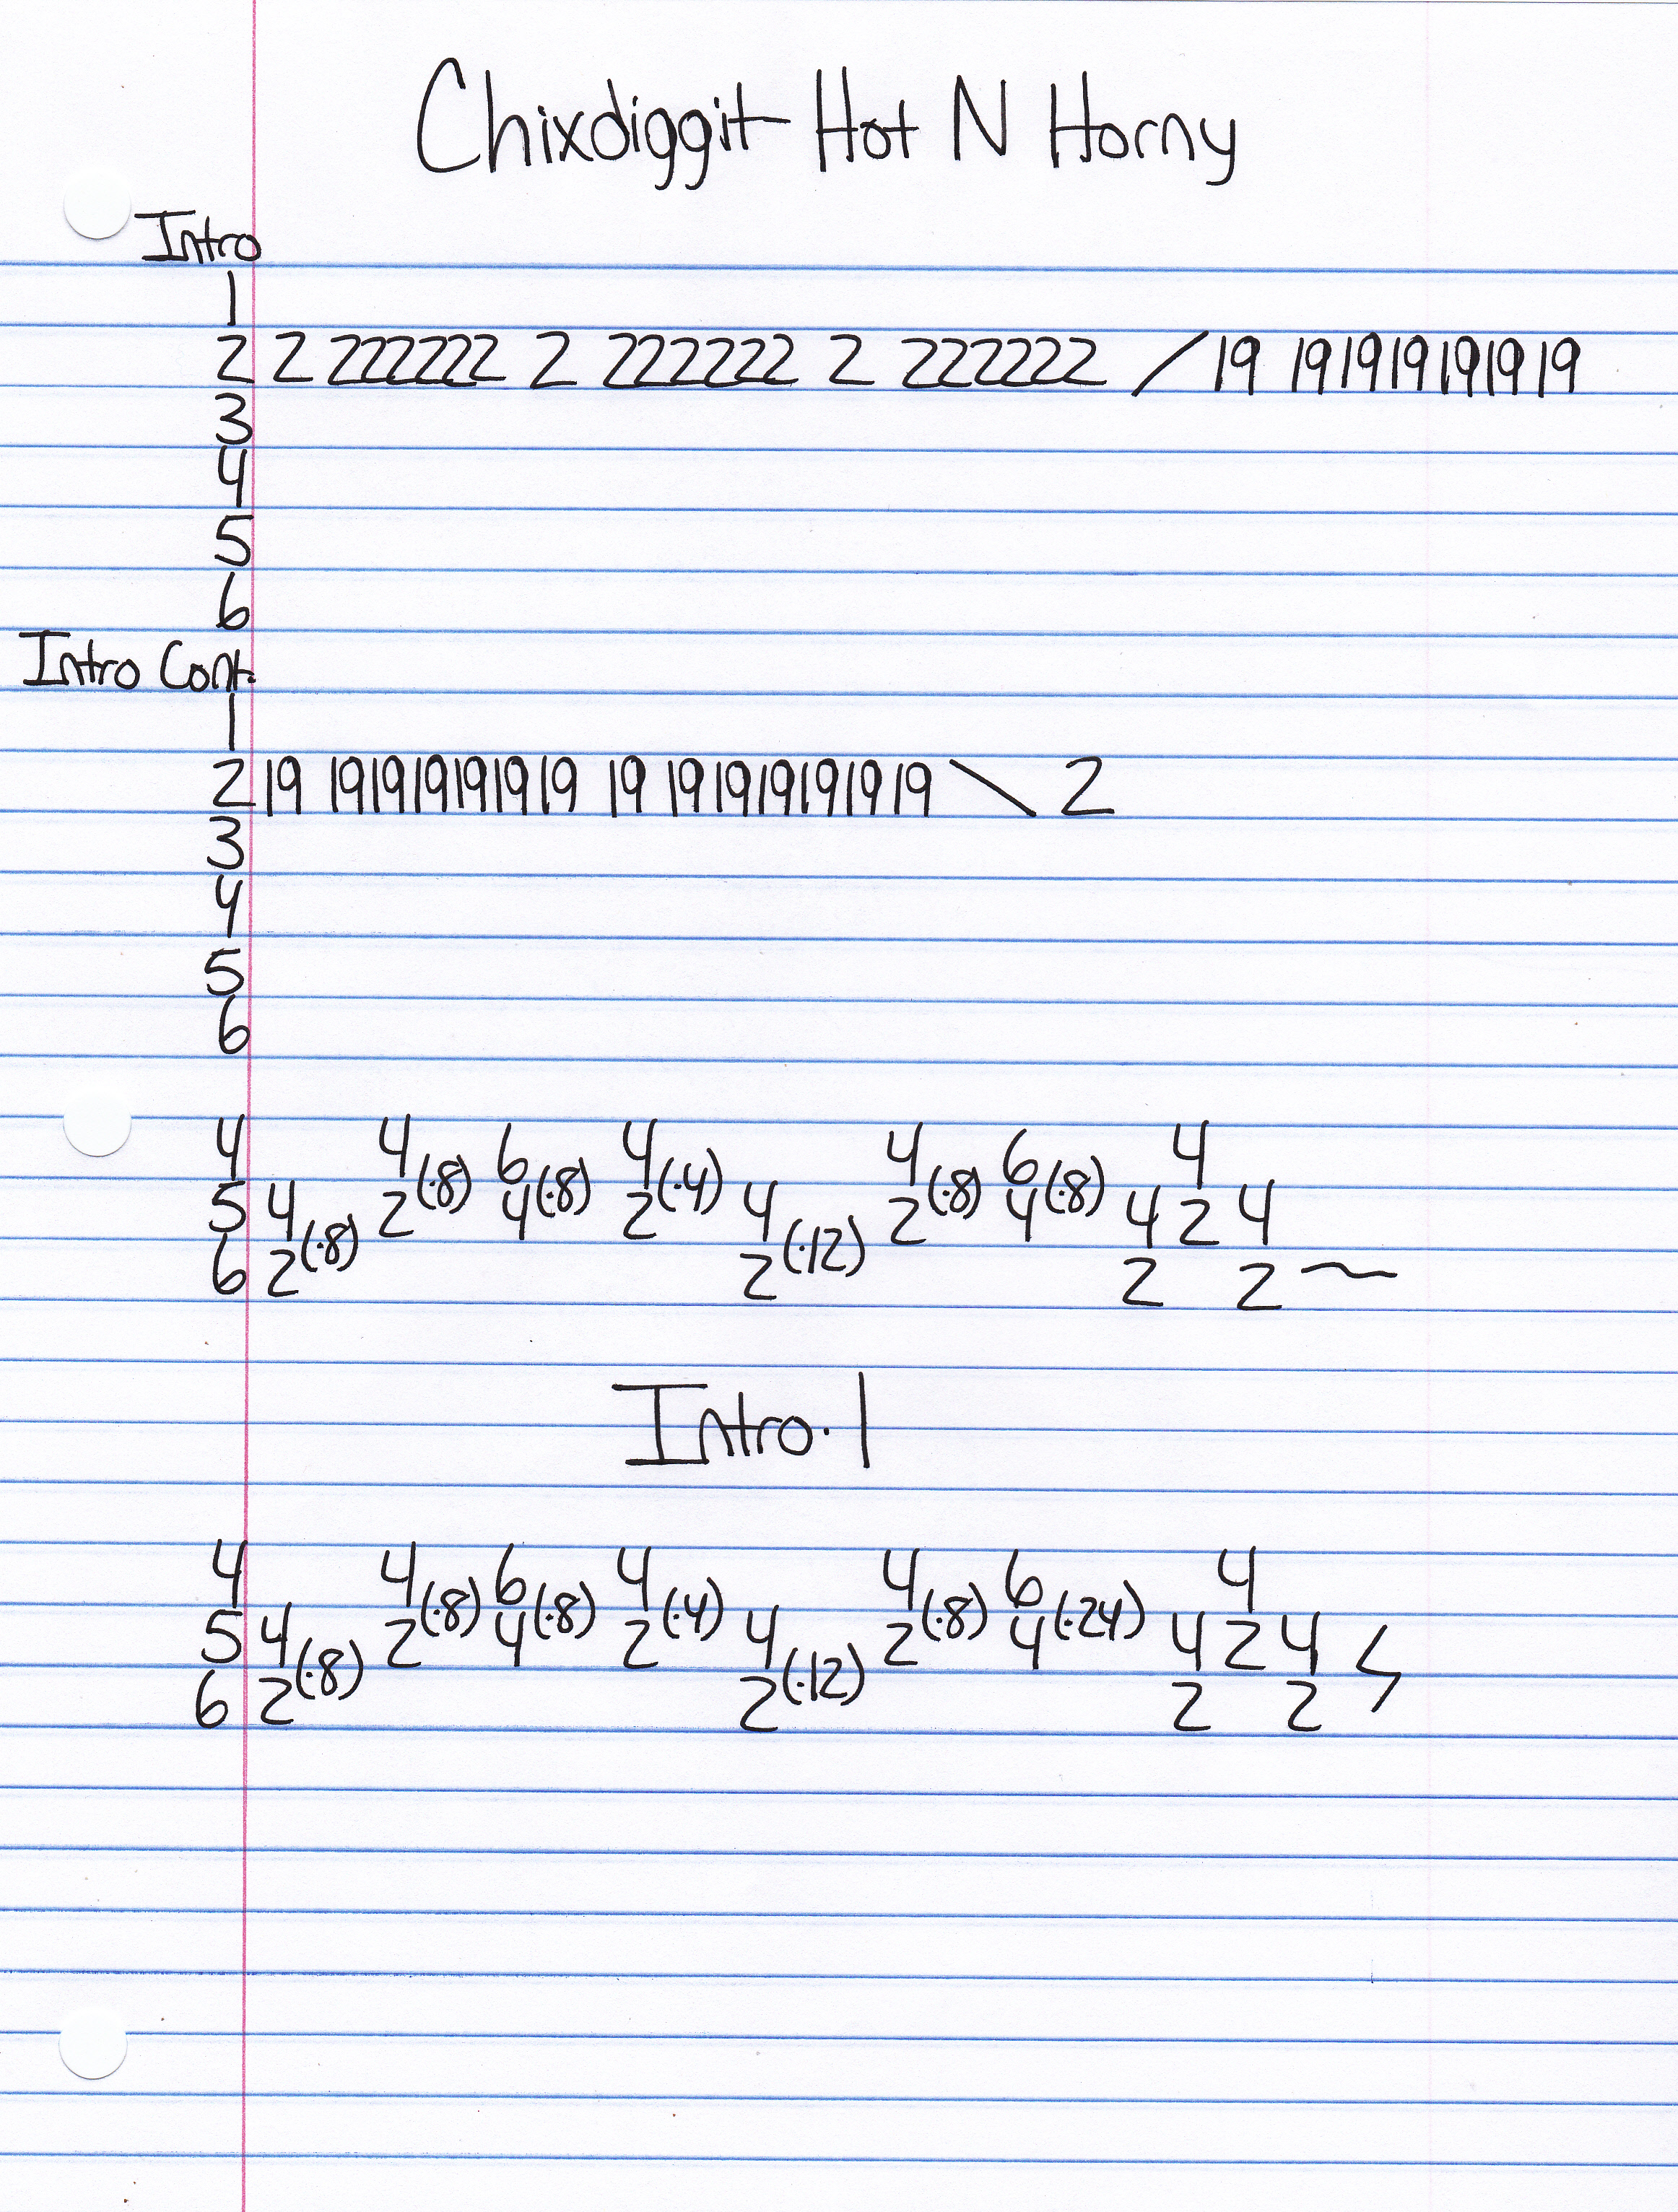 Chixdiggit Hot N Horny
Intro
1
2 2 222222 2 222222 2 222222 / 19 191919191919
3
4
5
6
Intro Cont.
1
2 19 191919191919 19 191919191919 \ 2
3
4
5
6
4 4(·8) 6 4(·4) 4(·8) 6 4
5 4 2 4(·8) 2 4 2 4(·8) 4 2 4
6 2(·8) 2(·12) 2 2 ~
Intro.1
4 4(·8) 6 4(·4) 4(·8) 6 4
5 4 2 4(·8) 2 4 2 4(·24) 4 2 4
6 2(·8) 2(·12) 2 2